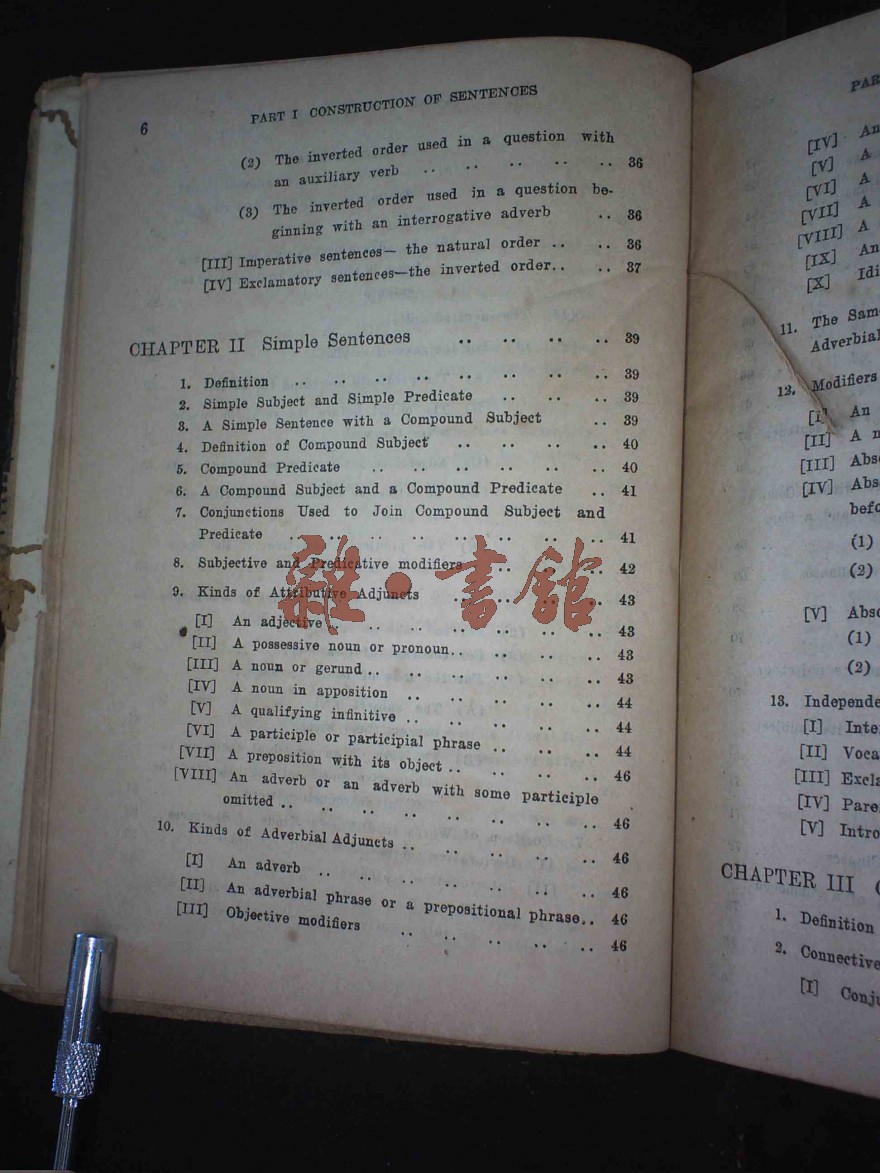 6 PART I CONSTRUCTION OF SENTENCES
(2) The inverted order used in a question with
an auxiliary verb .. .. .. .. .. 36
(3) The inverted order used in a question be-
ginning with an interrogative adverb .. 36
[III] Imperative sentences— the natural order .. .. 36
[IV] Exclamatory sentences—the inverted order.. .. 37
CHAPTER II Simple Sentences .. .. .. .. 39
1. Definition .. .. .. .. .. .. .. .. 39
2. Simple Subject and Simple Predicate .. .. .. 39
3. A Simple Sentence with a Compound Subject .. 39
4. Definition of Compound Subject .. .. .. .. 40
5. Compound Predicate .. .. .. .. .. .. 40
6. A Compound Subject and a Compound Predicate .. 41
7. Conjunctions Used to Join Compound Subject and
Predicate .. .. .. .. .. .. .. .. 41
8. Subjective and Predicative modifiers .. .. .. 42
9. Kinds of Attributive Adjuncts .. .. .. .. 43
[I] An adjective .. .. .. .. .. .. .. 43
[II] A possessive noun or pronoun.. .. .. .. 43
[III] A noun or gerund .. .. .. .. .. .. 43
[IV] A noun in apposition .. .. .. .. .. 44
[V] A qualifying infinitive .. .. .. .. .. 44
[VI] A participle or participial phrase .. .. .. 44
[VII] A preposition with its object .. .. .. .. 46
[VIII] An adverb or an adverb with some participle
omitted .. .. .. .. .. .. .. .. 46
10. Kinds of Adverbial Adjuncts .. .. .. .. .. 46
[I] An adverb .. .. .. .. .. .. .. 46
[II] An adverbial phrase or a prepositional phrase.. 46
[III] Objective modifiers .. .. .. .. .. 46
雜·書館
[IV] An
[V] A
[VI] A
[VII] A
[VIII] A
[IX] An
[X] Idi
11. The Sam
Adverbial
12. Modifiers
[I] An
[II] A n
[III] Abs
[IV] Abs
befo
(1)
(2)
[V] Abso
(1)
(2)
13. Independe
[I] Inte
[II] Voca
[III] Excla
[IV] Pare
[V] Intro
CHAPTER III
1. Definition
2. Connective
[I] Conju